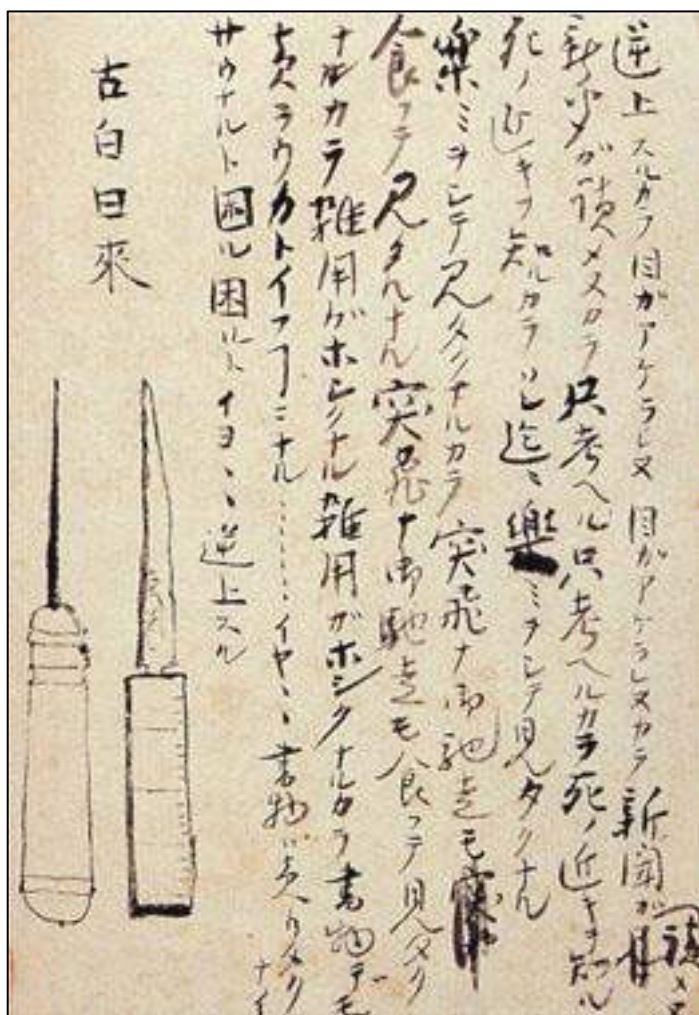 逆上スルカラ目ガアケラレヌ 目ガアケラレヌカラ新聞ガ讀メヌ
新聞ガ讀メヌカラ只考ヘル只考ヘルカラ死ノ近キヲ知ル
死ノ近キヲ知ルカラソレ迄ニ樂ミヲシテ見タクナル
樂ミヲシテ見タクナルカラ突飛ナ御馳走モ
食フテ見タクナル突飛ナ御馳走モ食フテ見タク
ナルカラ雑用ガホシクナル雑用ガホシクナルカラ書物デモ
売ラウカトイフヿニナル……イヤ〻書物ハ売リタクナイ
サウナルト困ル困ルトイヨ〻逆上スル
古白曰來